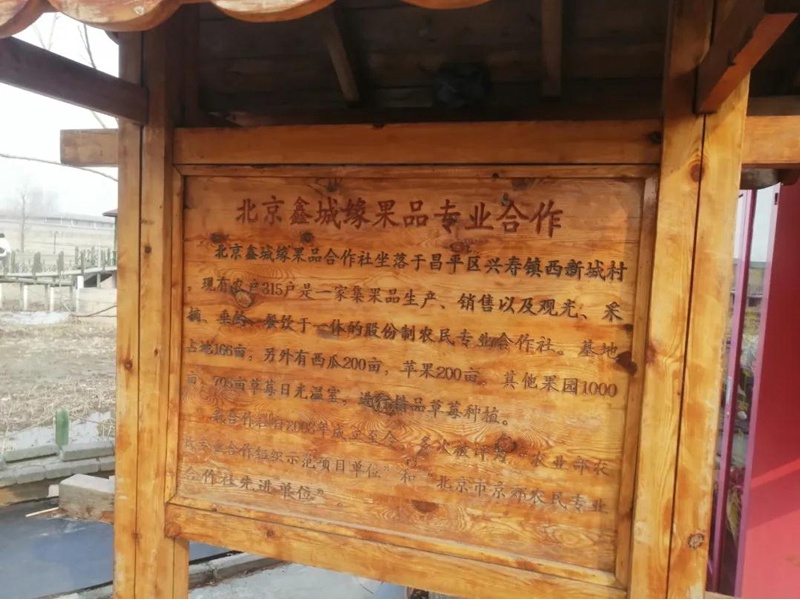 北京鑫城缘果品专业合作
北京鑫城缘果品合作社坐落于昌平区兴寿镇西新城村
，现有农户315户是一家集果品生产、销售以及观光、采
摘、垂钓、餐饮于一体的股份制农民专业合作社。基地
占地166亩；另外有西瓜200亩，苹果200亩，其他果园1000
亩，705亩草莓日光温室，进行精品草莓种植。
合作社自2008年成立至今，多次被评为“农业部农
民专业合作组织示范项目单位”和“北京市京郊农民专业
合作社先进单位”